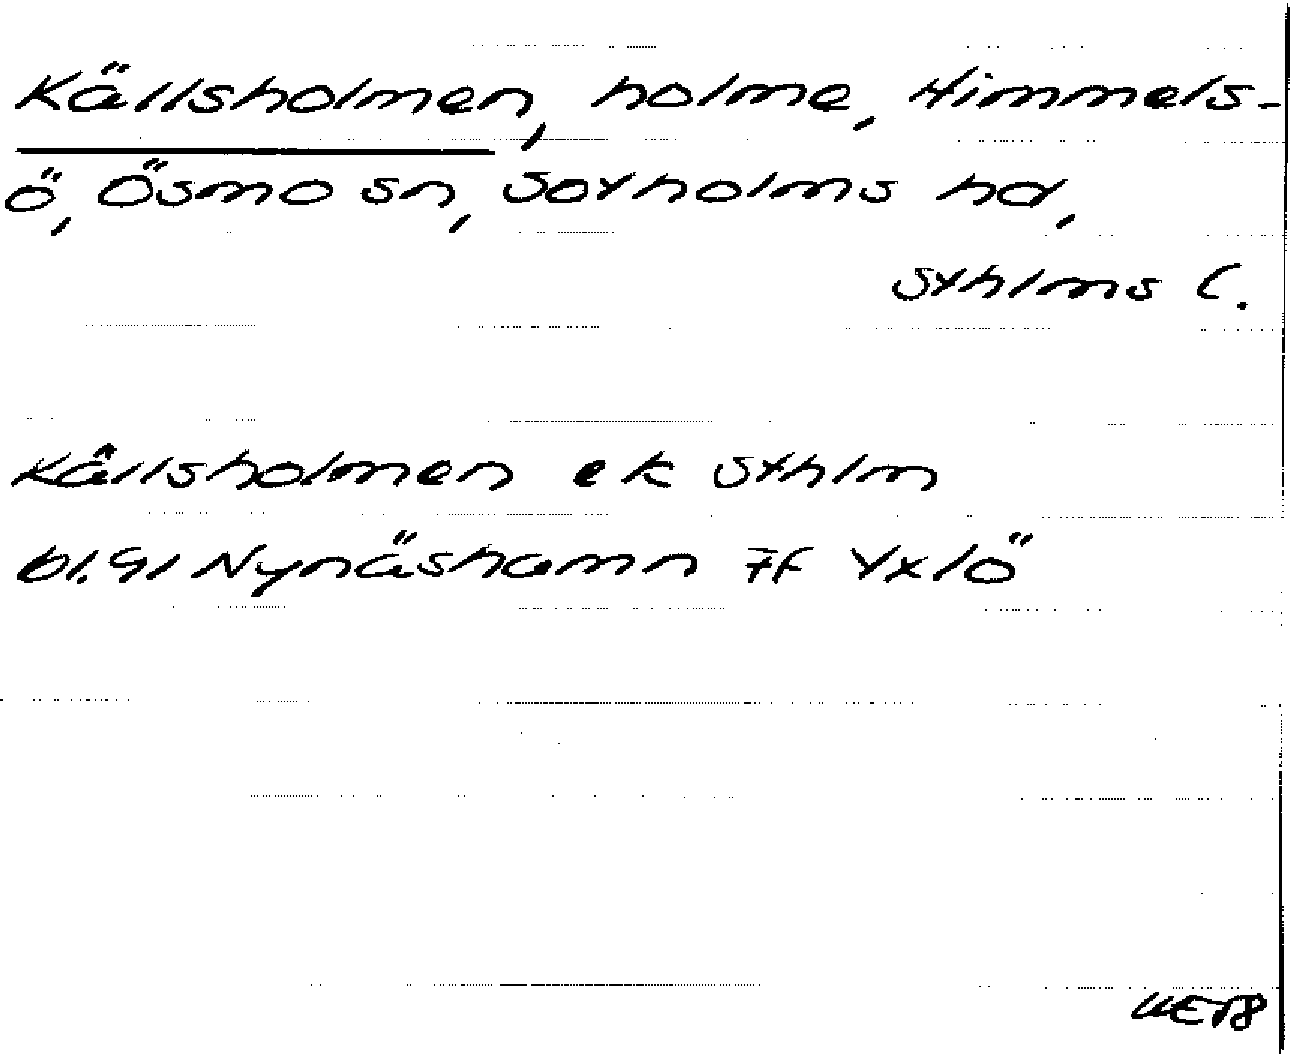 Källsholmen, holme, Himmels-
ö, Ösmo sn, Sotholms hd,
Sthlms l.
Källsholmen ek Sthlm
bl. 91 Nynäshamn 7f Yxlö